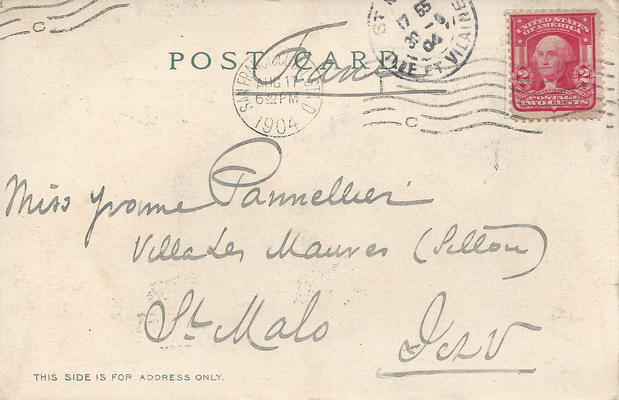 POST CARD
France
SAN FRANCISCO
AUG 17
6 PM
1904
ST
17 35
5 -9
04
ILLE ET VILAINE
UNITED STATES
OF AMERICA
2 2
POSTAGE
TWO CENTS
C
C
Miss Yvonne Pannellier
Villa Les Mauves (Sillon)
St Malo I & V
THIS SIDE IS FOR ADDRESS ONLY.